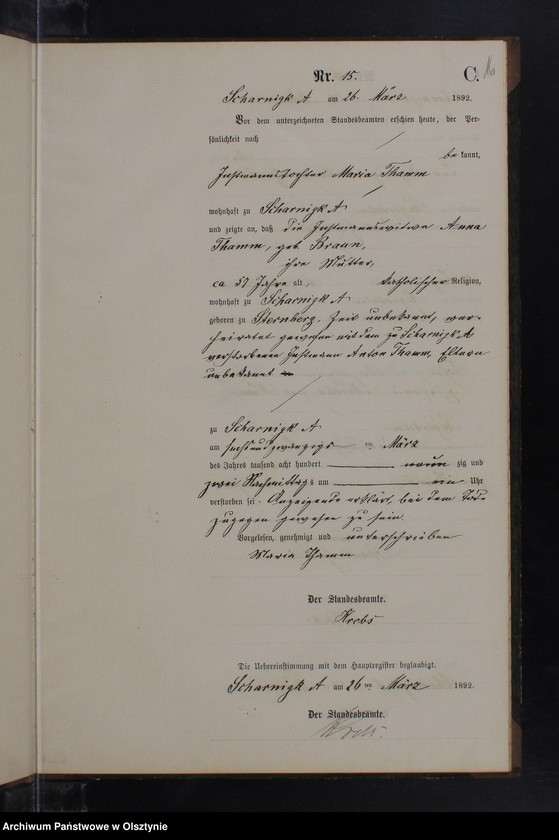 Nr. 15.
C.
Scharnigk A am 26. März 1892.
Vor dem unterzeichneten Standesbeamten erschien heute, der Per-
sönlichkeit nach
be kannt,
Instmannstochter Maria Thamm
wohnhaft zu Scharnigk A
und zeigte an, daß die Instmannswitwe Anna
Thamm, geb Braun,
ihre Mutter,
ca 57 Jahre alt, katholischer Religion,
wohnhaft zu Scharnigk A
geboren zu Sternberg, Zeit unbekannt, ver-
heiratet gewesen mit dem zu Scharnigk A
verstorbenen Instmann Anton Thamm, Eltern
unbekannt
zu Scharnigk A
am sechsundzwanzigs ten März
des Jahres tausend acht hundert neun zig und
zwei Nachmittags um ein Uhr
verstorben sei. Anzeigende erklärt, bei dem Tode
zugegen gewesen zu sein.
Vorgelesen, genehmigt und unterschrieben
Maria Thamm
Der Standesbeamte.
Krebs
Die Uebereinstimmung mit dem Hauptregister beglaubigt.
Scharnigk A am 26 ten März 1892.
Der Standesbeamte.
Krebs.
Archiwum Państwowe w Olsztynie